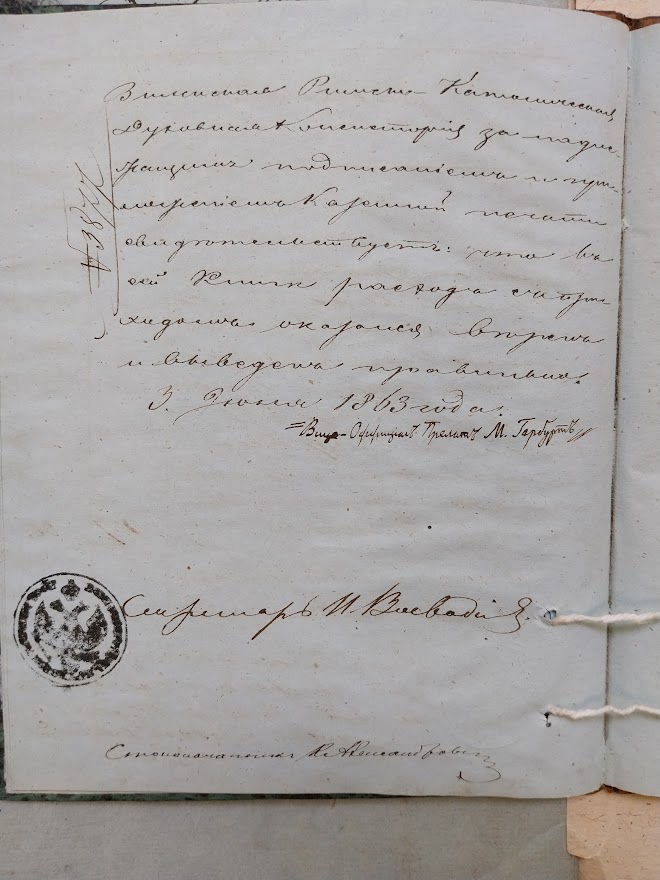 Виленская Римско-Католическая
Духовная Консистория за надле-
жащимъ подписаніемъ и при-
ложеніемъ казенной печати
свидѣтельствуетъ: что въ
сей Книгѣ расходъ съ при-
ходомъ оказался вѣренъ
и выведенъ правильно.
3. Іюня 1863 года.
Вице-Оффиціалъ Прелатъ М. Гербуртъ
Секретарь И.
Столоначальникъ
№ 3871